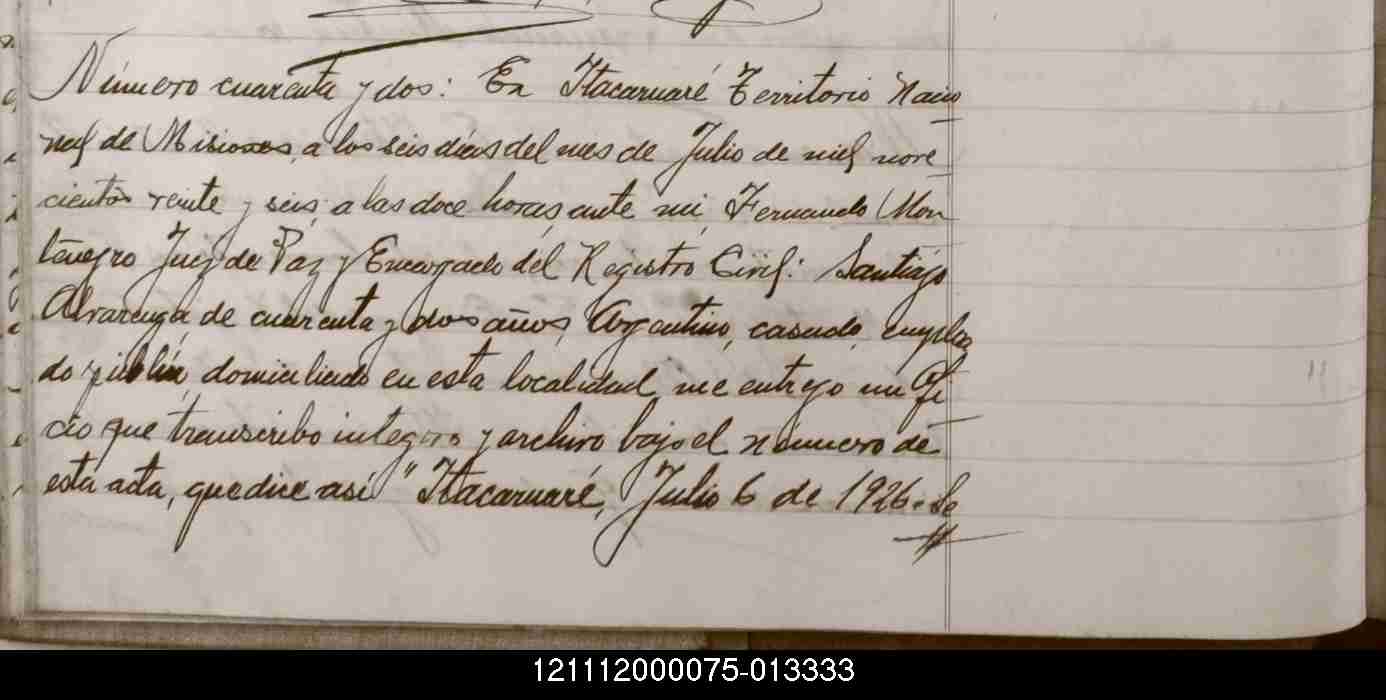 Número cuarenta y dos: En Itacaruaré Territorio Nacio
nal de Misiones, a los seis días del mes de Julio de mil nove
cientos veinte y seis, a las doce horas, ante mi, Fernando Mon
tenegro Juez de Paz y Encargado del Registro Civil: Santiago
Alvarenga de cuarenta y dos años, Argentino, casado, emplea
do público, domiciliado en esta localidad, me entrego un Ofi
cio que transcribo integro y archivo bajo el número de
esta acta, que dice así "Itacaruaré, Julio 6 de 1926.-Se
121112000075-013333